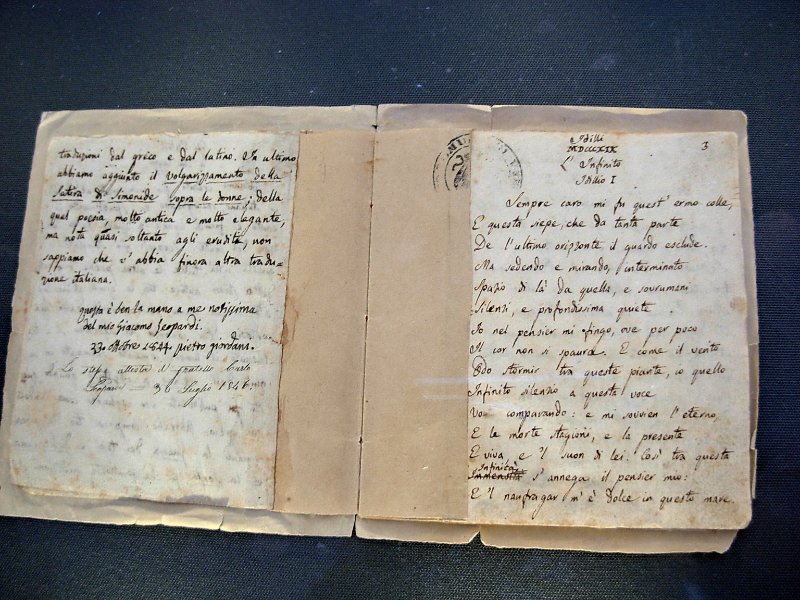 traduzioni dal greco e dal latino. In ultimo
abbiamo aggiunto il volgarizzamento della
Satira di Simonide sopra le donne; della
qual poesia molto antica e molto elegante,
ma nota quasi soltanto agli eruditi, non
sappiamo che v'abbia finora altra tradu=
zione italiana.
questa è ben la mano a me notissima
del mio Giacomo Leopardi.
23. ottobre 1844 pietro giordani.
Lo stesso attesta il fratello Carlo
Leopardi 30 Luglio 1846
3
Idilli
MDCCCXIX
L'Infinito
Idilio I
Sempre caro mi fu quest'ermo colle,
E questa siepe, che da tanta parte
De l'ultimo orizzonte il guardo esclude.
Ma sedendo e mirando, interminato
Spazio di là da quella, e sovrumani
Silenzi, e profondissima quiete
Io nel pensier mi fingo, ove per poco
Il cor non si spaura. E come il vento
Odo stormir tra queste piante, io quello
Infinito silenzio a questa voce
Vo comparando: e mi sovvien l'eterno,
E le morte stagioni, e la presente
E viva, e 'l suon di lei. Così tra questa
Infinità
Immensità s'annega il pensier mio:
E 'l naufragar m'è dolce in questo mare.